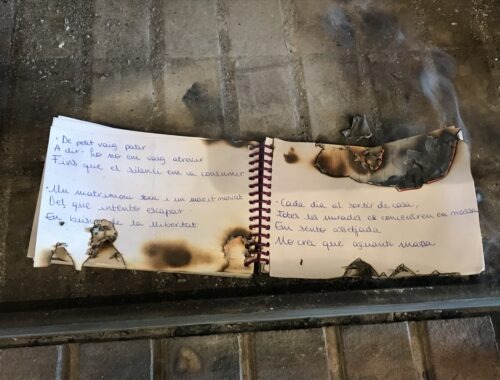 · De petit vaig patir
A dir-ho no em vaig atrevir
Fins que el silenci em va consumir
· Un matrimoni i un marit malvat
Del que intento escapar
En busca de la llibertat
· Cada dia al sortir de casa,
Totes les mirades es concentren en massa
Em sento assetjada
No crec que aguanti massa